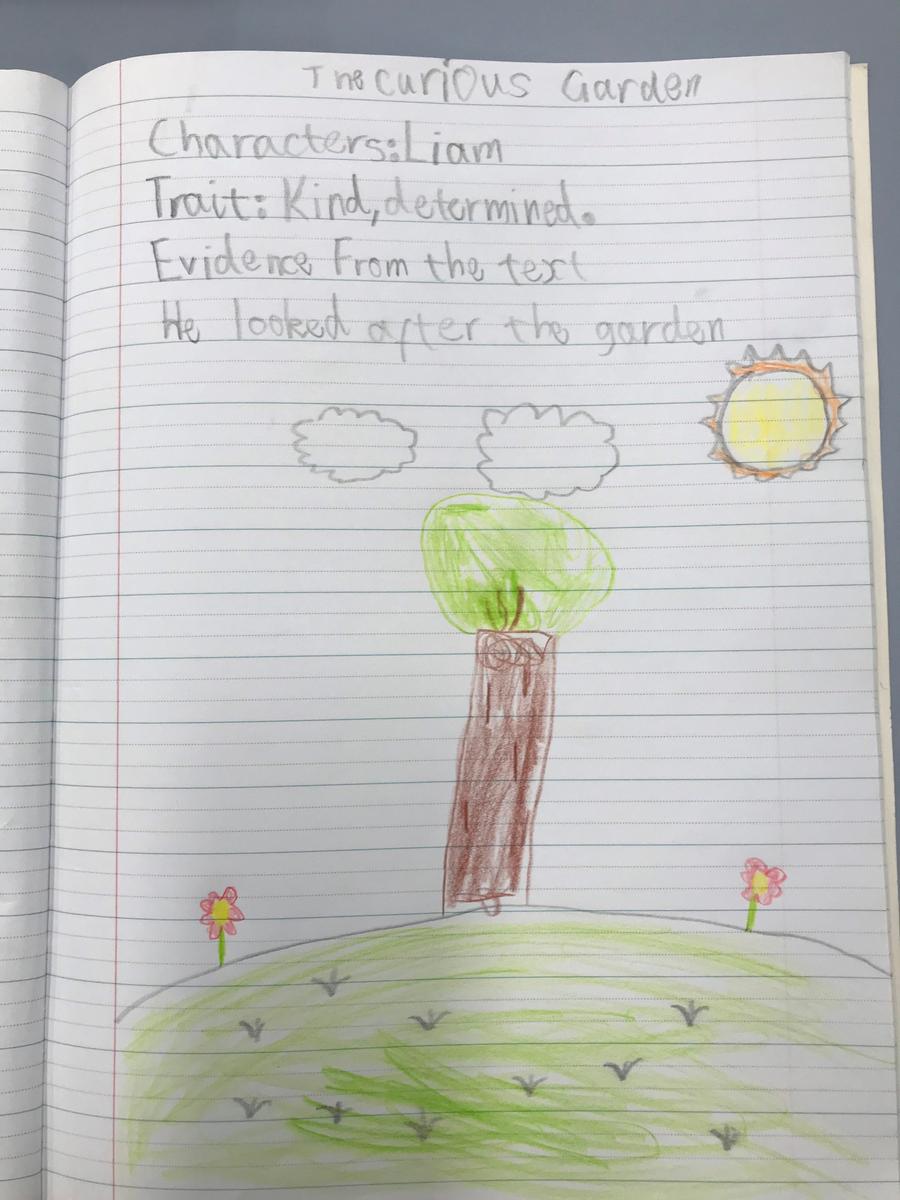 The Curious Garden
Characters: Liam
Trait: Kind, determined.
Evidence From the text
He looked after the garden